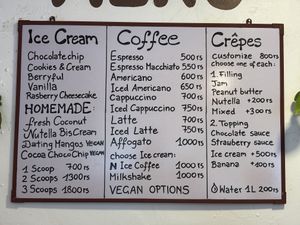 Ice Cream
Chocolate chip
Cookies & Cream
Berryful
Vanilla
Rasberry Cheesecake
HOMEMADE:
fresh Coconut
Nutella BisCream
Dating Mangos VEGAN
Cocoa ChocoChip VEGAN
1 Scoop 700rs
2 Scoops 1300rs
3 Scoops 1800rs
Coffee
Espresso 500rs
Espresso Macchiato 550rs
Americano 600rs
Iced Americano 650rs
Cappuccino 700rs
Iced Cappuccino 750rs
Latte 700rs
Iced Latte 750rs
Affogato 1000rs
choose Ice cream:
N Ice Coffee 1000rs
Milkshake 1000rs
VEGAN OPTIONS
Crêpes
Customize 800rs
choose one of each:
1. Filling
Jam
Peanut butter
Nutella +200rs
Mixed +300rs
2. Topping
Chocolate sauce
Strawberry sauce
Ice cream +500rs
Banana +100rs
Water 1L 200rs